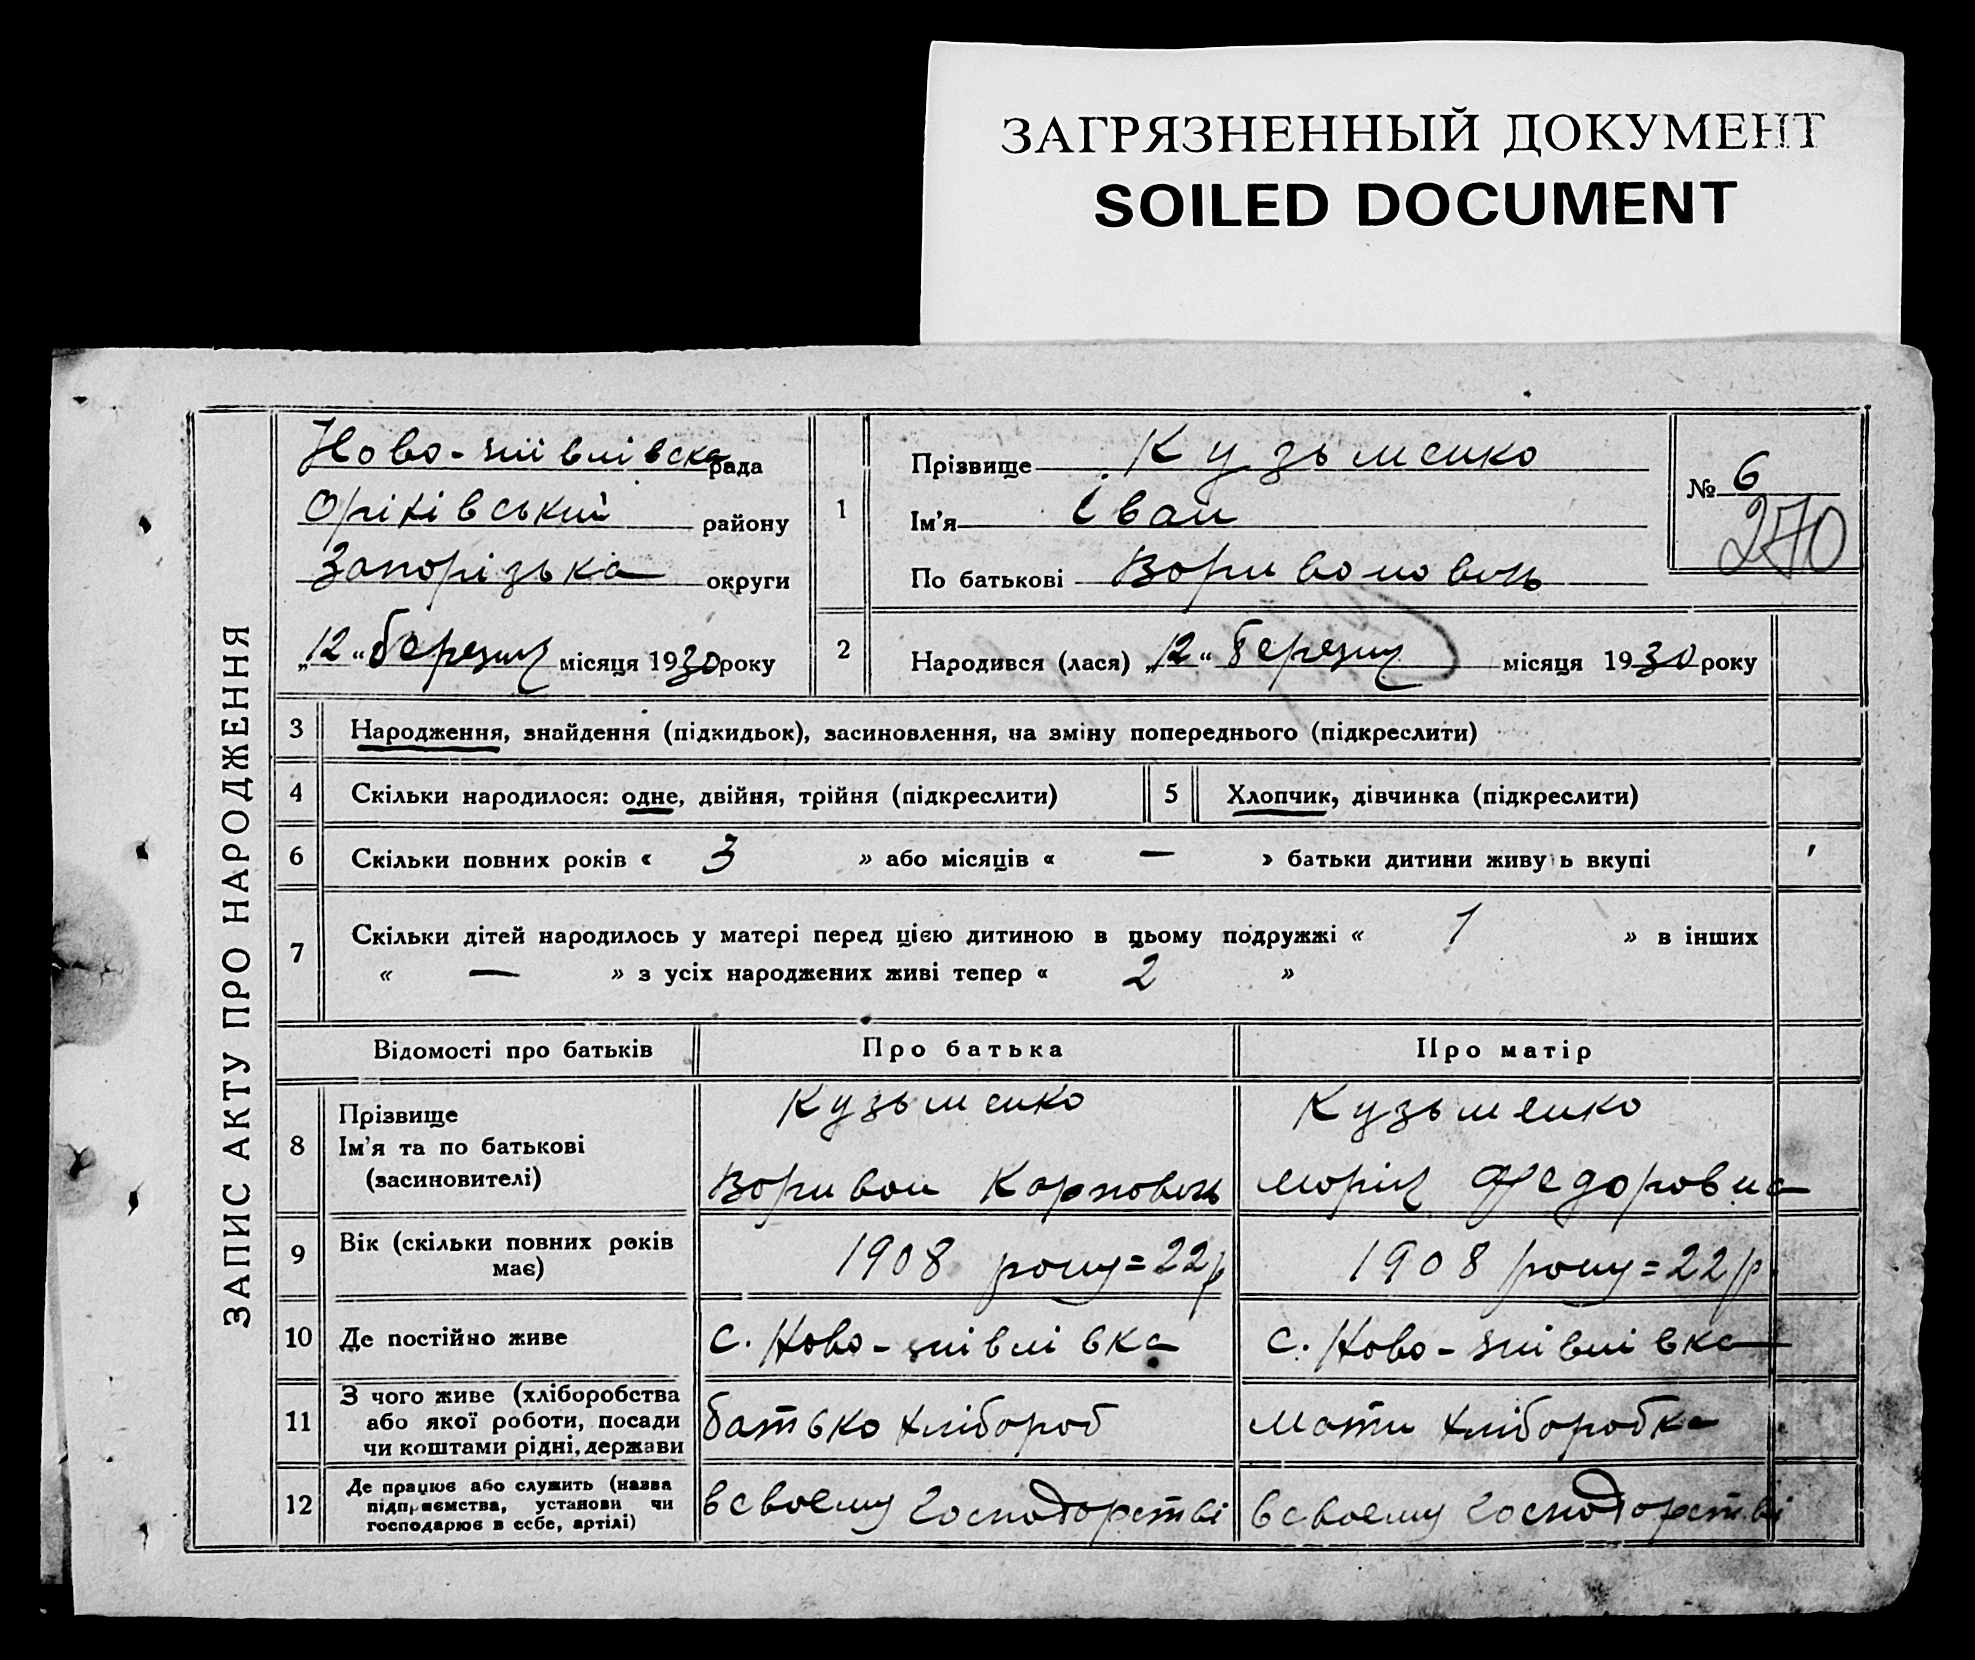 ЗАГРЯЗНЕННЫЙ ДОКУМЕНТ
SOILED DOCUMENT
ЗАПИС АКТУ ПРО НАРОДЖЕННЯ
Ново- рада
Оріхівський району
Запорізька округи
„12“ березня місяця 1930 року
1
Прізвище Кузьменко
Ім'я Іван
По батькові
№ 6
270
2
Народився (лася) „12“ березня місяця 1930 року
3 Народження, знайдення (підкидьок), засиновлення, на зміну попереднього (підкреслити)
4 Скільки народилося: одне, двійня, трійня (підкреслити)
5 Хлопчик, дівчинка (підкреслити)
6 Скільки повних років « 3 » або місяців « — » батьки дитини живуть вкупі
7 Скільки дітей народилось у матері перед цією дитиною в цьому подружжі « 1 » в інших
« — » з усіх народжених живі тепер « 2 »
Відомості про батьків Про батька Про матір
8
Прізвище Кузьменко Кузьменко
Ім'я та по батькові
(засиновителі) Карпович Марія Федоровна
9 Вік (скільки повних років має) 1908 року=22р 1908 року=22р.
10 Де постійно живе с. Ново- с. Ново-
11 З чого живе (хліборобства
або якої роботи, посади
чи коштами рідні, держави батько хлібороб мати хліборобка
12 Де працює або служить (назва
підприємства, установи чи
господарює в себе, артілі) в своєму господарстві в своєму господарстві